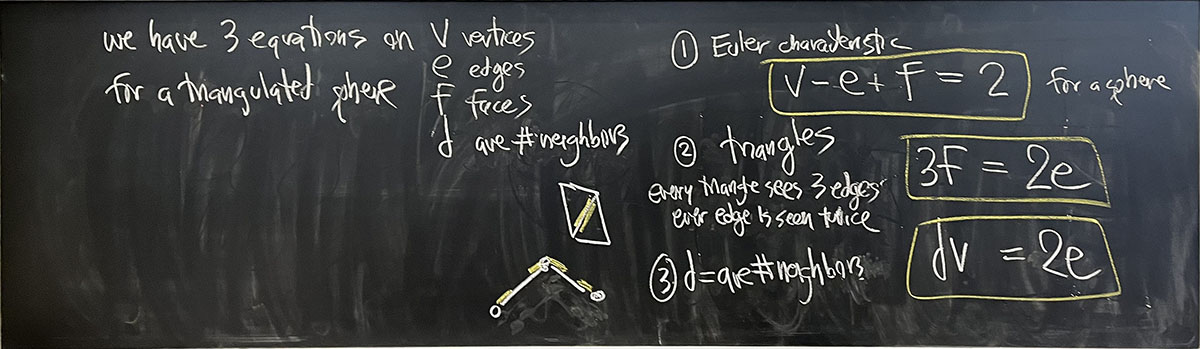 we have 3 equations on V vertices
e edges
for a triangulated sphere f faces
d ave # neighbors
① Euler characteristic
V - e + f = 2 for a sphere
② triangles
every triangle sees 3 edges
ever edge is seen twice
3f = 2e
③ d = ave # neighbors
dv = 2e